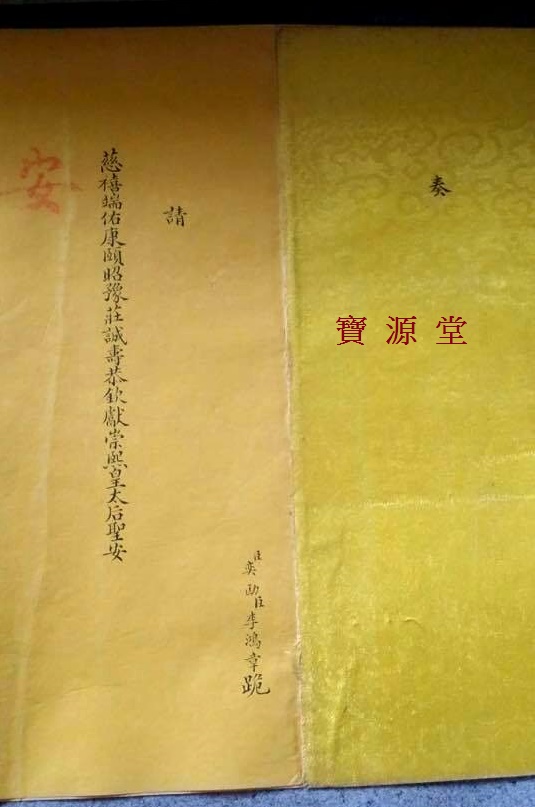 奏
寶源堂
臣奕劻臣李鴻章跪
請
慈禧端佑康頤昭豫莊誠壽恭欽獻崇熙皇太后聖安
安